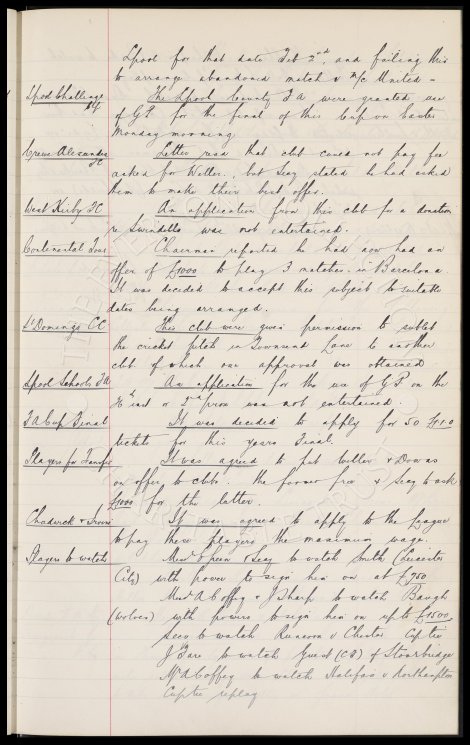 Lpool for that date Feb 2nd, and failing this
to arrange abandoned match v M/c United -
Lpool Challenge Cup
The Lpool County F A were granted use
of G.P. for the final of this Cup on Easter
Monday morning
Crewe Alexandra FC
Letter read that club could not pay fee
asked for Weller, but Secy stated he had asked
them to make their best offer.
West Kirby FC
An application from this club for a donation
re Swindells was not entertained.
Continental Tour
Chairman reported he had now had an
offer of £1000 to play 3 matches in Barcelona
It was decided to accept this subject to suitable
dates being arranged.
St Domingo CC
This club were given permission to sublet
the cricket pitch in Townsend Lane to another
club of which our approval was obtained
Lpool Schools FA
An application for the use of G.P. on the
was not entertained.
F A Cup Final
It was decided to apply for 50
tickets for this years Final.
Players for Transfer
It was agreed to put Weller & Downs
on offer to clubs. The former free & Secy to ask
£1000 for the latter.
Chadwick & Irvine
It was agreed to apply to the League
to pay these players the maximum wage.
Players to watch
Messrs Green & Secy to watch Smith (Leicester
City) with power to sign him on at £750
Messrs A Coffey & J Sharp to watch Baugh
(Wolves) with powers to sign him on up to £1500.
Secy to watch Runcorn v Chester Cup tie
to watch Guest (CR) of Stourbridge
Mr A Coffey to watch Halifax v Northampton
Cuptie replay